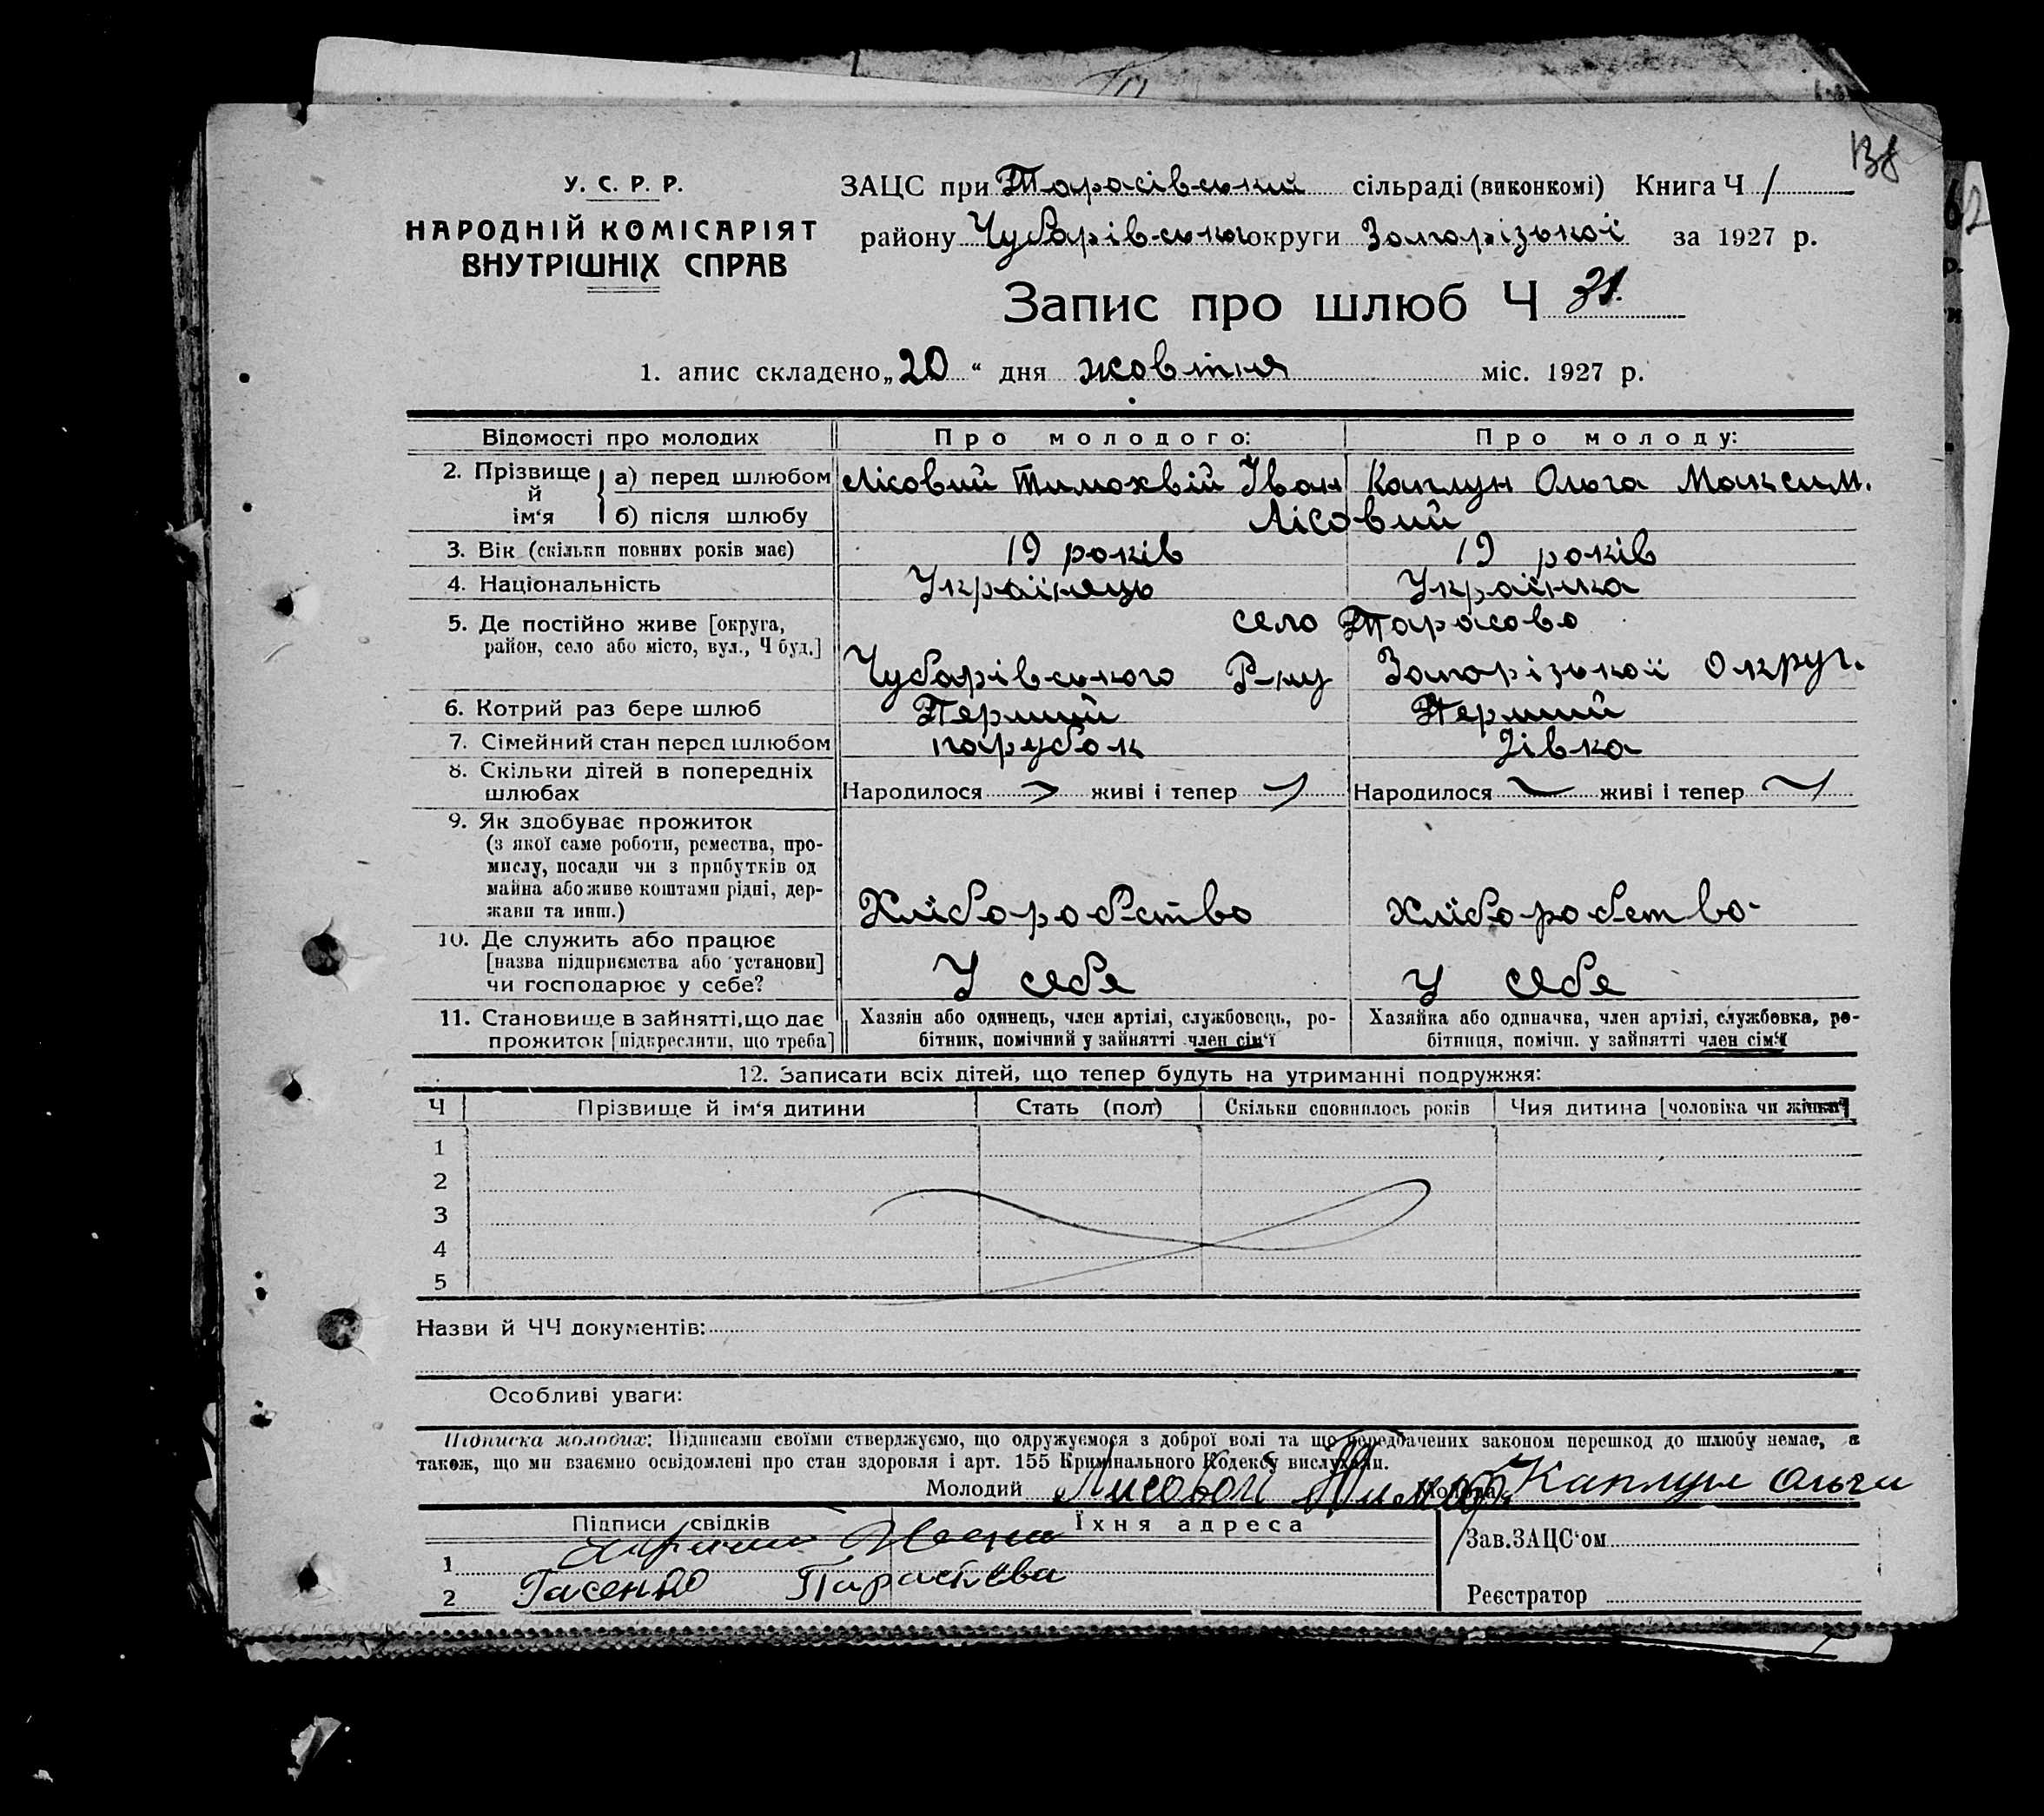 138
У. С. Р. Р.
НАРОДНІЙ КОМІСАРІЯТ
ВНУТРІШНІХ СПРАВ
ЗАЦС при Тарасівській сільраді (виконкомі) Книга Ч 1
району Чубарівського округи Запорізької за 1927 р.
Запис про шлюб Ч 31.
1. апис складено „20“ дня жовтня міс. 1927 р.
Відомості про молодих Про молодого: Про молоду:
2. Прізвище й ім‘я а) перед шлюбом Лісовий Тимохвій Іван Каплун Ольга Максим.
б) після шлюбу Лісовий
3. Вік (скільки повних років має) 19 років 19 років
4. Національність Українець Українка
5. Де постійно живе [округа, село Тарасово
район, село або місто, вул., Ч буд.] Чубарівського Р-ну Запорізької Округ.
6. Котрий раз бере шлюб Перший Перший
7. Сімейний стан перед шлюбом парубок дівка
8. Скільки дітей в попередніх
шлюбах Народилося живі і тепер Народилося живі і тепер
9. Як здобуває прожиток
(з якої саме роботи, ремества, про-
мислу, посади чи з прибутків од
майна або живе коштами рідні, дер-
жави та инш.) Хліборобство хліборобство
10. Де служить або працює
[назва підприємства або установи]
чи господарює у себе? У себе У себе
11. Становище в зайнятті, що дає Хазяїн або одинець, член артілі, службовець, ро- Хазяйка або одиначка, член артілі, службовка, ро-
прожиток [підкреслити, що треба] бітник, помічний у зайнятті член сім‘ї бітниця, помічн. у зайнятті член сім‘ї
12. Записати всіх дітей, що тепер будуть на утриманні подружжя:
Ч Прізвище й ім‘я дитини Стать (пол) Скільки сповнилось років Чия дитина [чоловіка чи жінки]
1
2
3
4
5
Назви й ЧЧ документів:
Особливі уваги:
Підписка молодих: Підписами своїми стверджуємо, що одружуємося з доброї волі та що передбачених законом перешкод до шлюбу немає, а
також, що ми взаємно освідомлені про стан здоровля і арт. 155 Кримінального Кодексу вислухали.
Молодий Лисовой Молода Каплун Ольга
Підписи свідків Їхня адреса Зав. ЗАЦС‘ом
1
2 Реєстратор